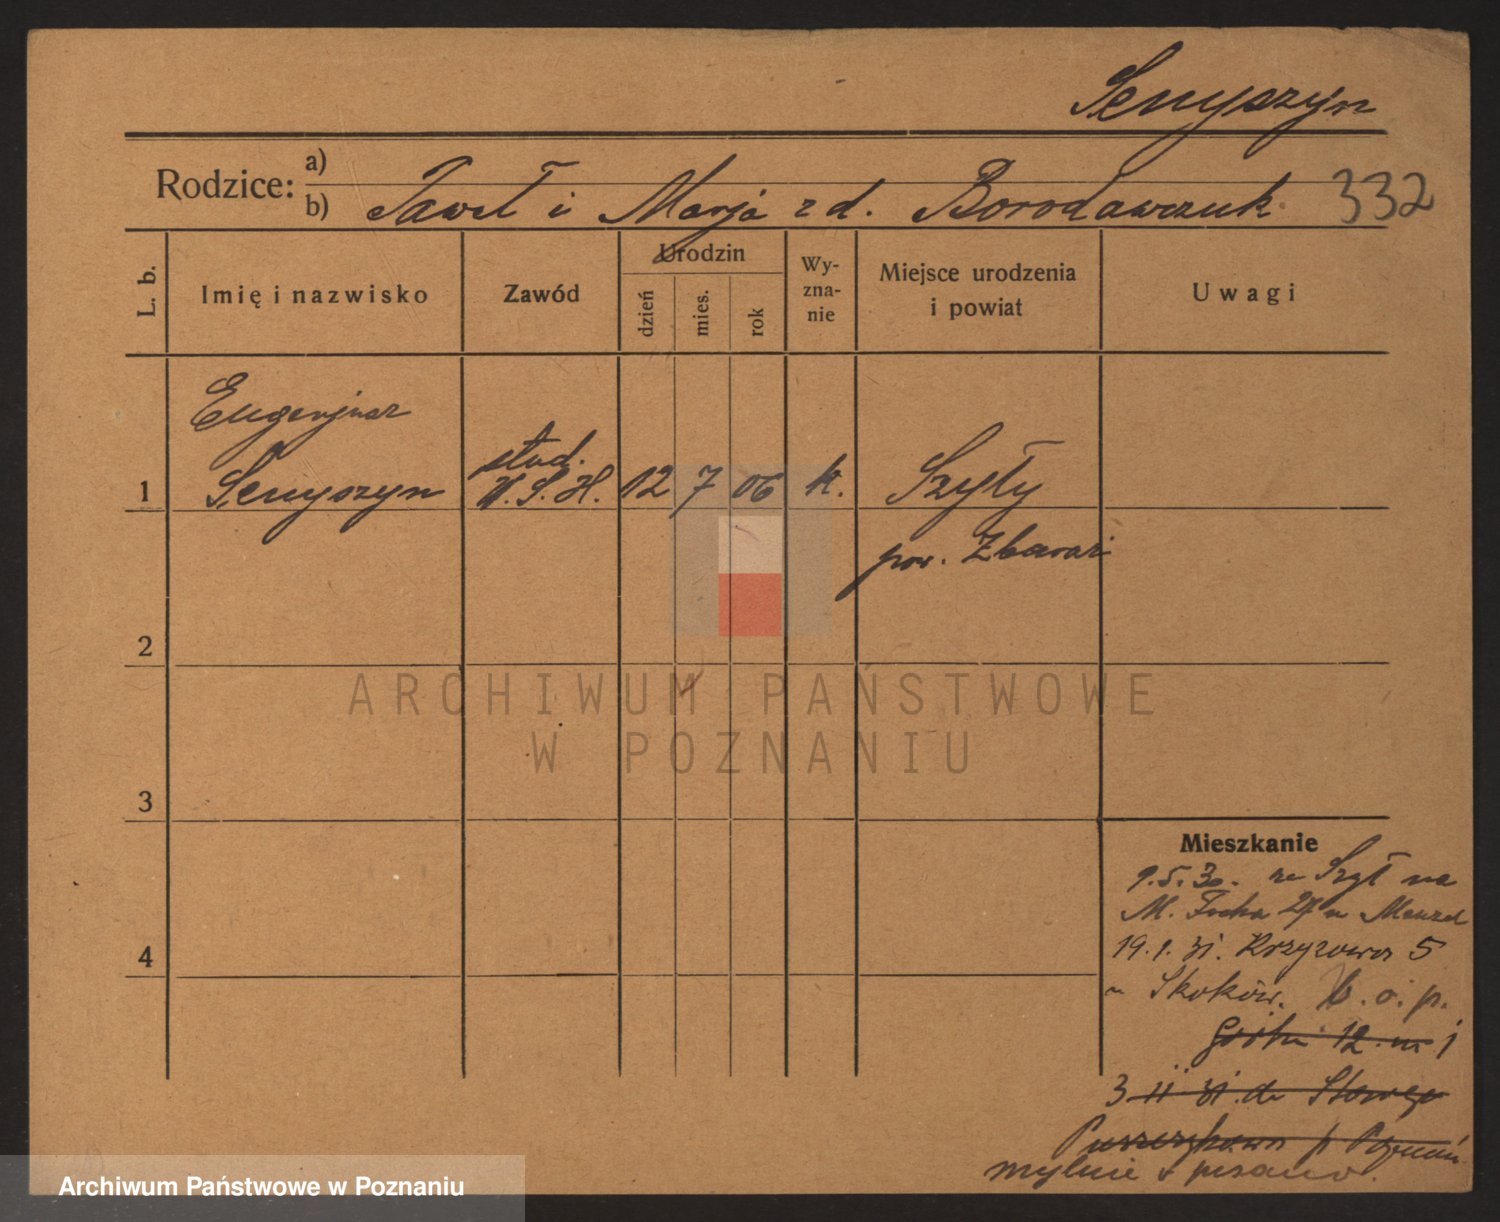 Senyszyn
Rodzice: a)
b) Paweł i Marja z d. Borodawczuk 332
L. b.
Imię i nazwisko
Zawód
Urodzin
dzień
mies.
rok
Wy-
zna-
nie
Miejsce urodzenia
i powiat
Uwagi
Eugenjusz
1 Senyszyn
stud.
W. S. H.
12 7 06 k. Szyły
pow. Zbaraż
2
ARCHIWUM PAŃSTWOWE
W POZNANIU
3
4
Mieszkanie
9.5.30. ze Szył na
M. Focha 27 u
19.1.31. Krzyżowa 5
u Skoków. b. o. p.
12 m 1
3 11 31 do Starego
Puszczykowa p Poznań
mylnie pisano.
Archiwum Państwowe w Poznaniu